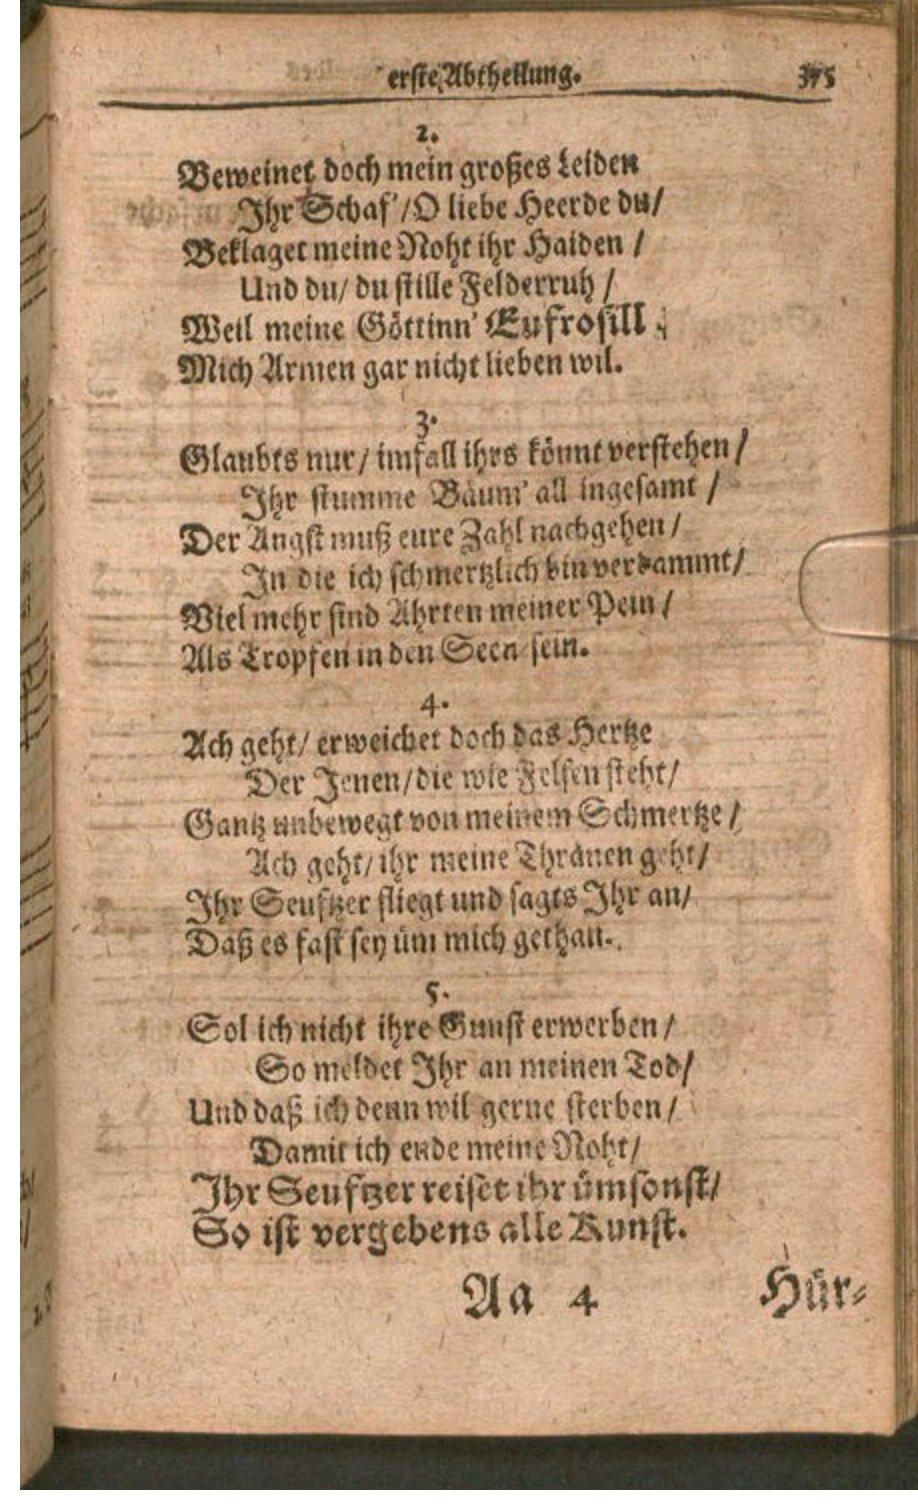 erste Abtheilung. 375
2.
Beweinet doch mein großes Leiden
Ihr Schaf'/O liebe Heerde du/
Beklaget meine Noht ihr Haiden /
Und du/ du stille Felderruh /
Weil meine Göttinn' Eufrosill
Mich Armen gar nicht lieben wil.
3.
Glaubts nur/ imfall ihrs könnt verstehen/
Ihr stumme Bäum' all ingesamt /
Der Angst muß eure Zahl nachgehen/
In die ich schmertzlich bin verdammt/
Viel mehr sind Ahrten meiner Pein /
Als Tropfen in den Seen sein.
4.
Ach geht/ erweichet doch das Hertze
Der Jenen/die wie Felsen steht/
Gantz unbewegt von meinem Schmertze /
Ach geht/ ihr meine Thränen geht/
Ihr Seuftzer fliegt und sagts Ihr an/
Daß es fast sey üm mich gethan.
5.
Sol ich nicht ihre Gunst erwerben/
So meldet Ihr an meinen Tod/
Und daß ich denn wil gerne sterben/
Damit ich ende meine Noht/
Ihr Seuftzer reiset ihr ümsonst/
So ist vergebens alle Kunst.
Aa 4 Hür-